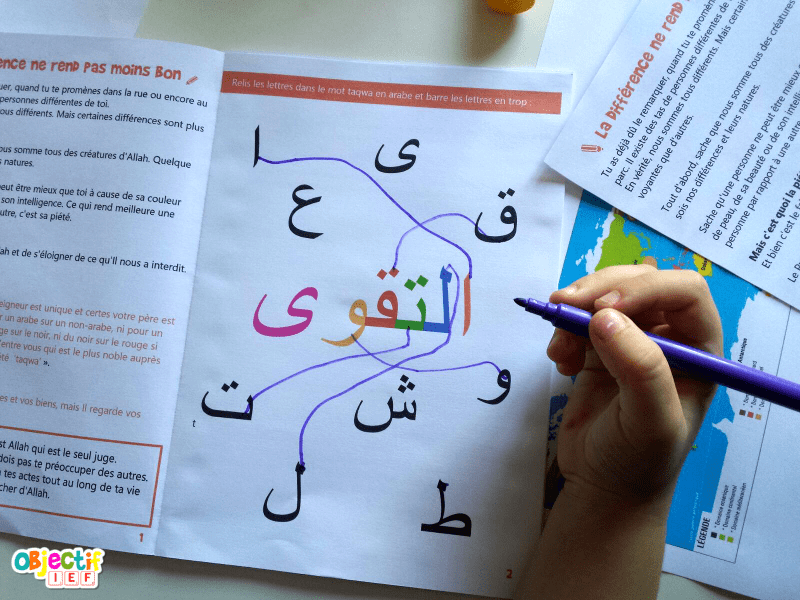 ence ne rend pas moins bon
uer, quand tu te promènes dans la rue ou encore au
personnes différentes de toi.
ous différents. Mais certaines différences sont plus
ous somme tous des créatures d'Allah. Quelque
s natures.
peut être mieux que toi à cause de sa couleur
son intelligence. Ce qui rend meilleure une
utre, c'est sa piété.
ah et de s'éloigner de ce qu'Il nous a interdit.
eigneur est unique et certes votre père est
r un arabe sur un non-arabe, ni pour un
ge sur le noir, ni du noir sur le rouge si
'entre vous qui est le plus noble auprès
été `taqwa' ».
es et vos biens, mais Il regarde vos
st Allah qui est le seul juge.
dois pas te préoccuper des autres.
tes actes tout au long de ta vie
cher d'Allah.
1
Relis les lettres dans le mot taqwa en arabe et barre les lettres en trop :
ا
ى
ع
ق
التقوى
ت
ش
و
t
ل
ط
2
La différence ne rend
Tu as déjà dû le remarquer, quand tu te promèn
parc. Il existe des tas de personnes différentes de
En vérité, nous sommes tous différents. Mais certain
voyantes que d'autres.
Tout d'abord, sache que nous somme tous des créatures
sois nos différences et leurs natures.
Sache qu'une personne ne peut être mieux
de peau, de sa beauté ou de son intell
personne par rapport à une autre
Mais c'est quoi la pié
Et bien c'est le f
LÉGENDE
Objectif
IEF